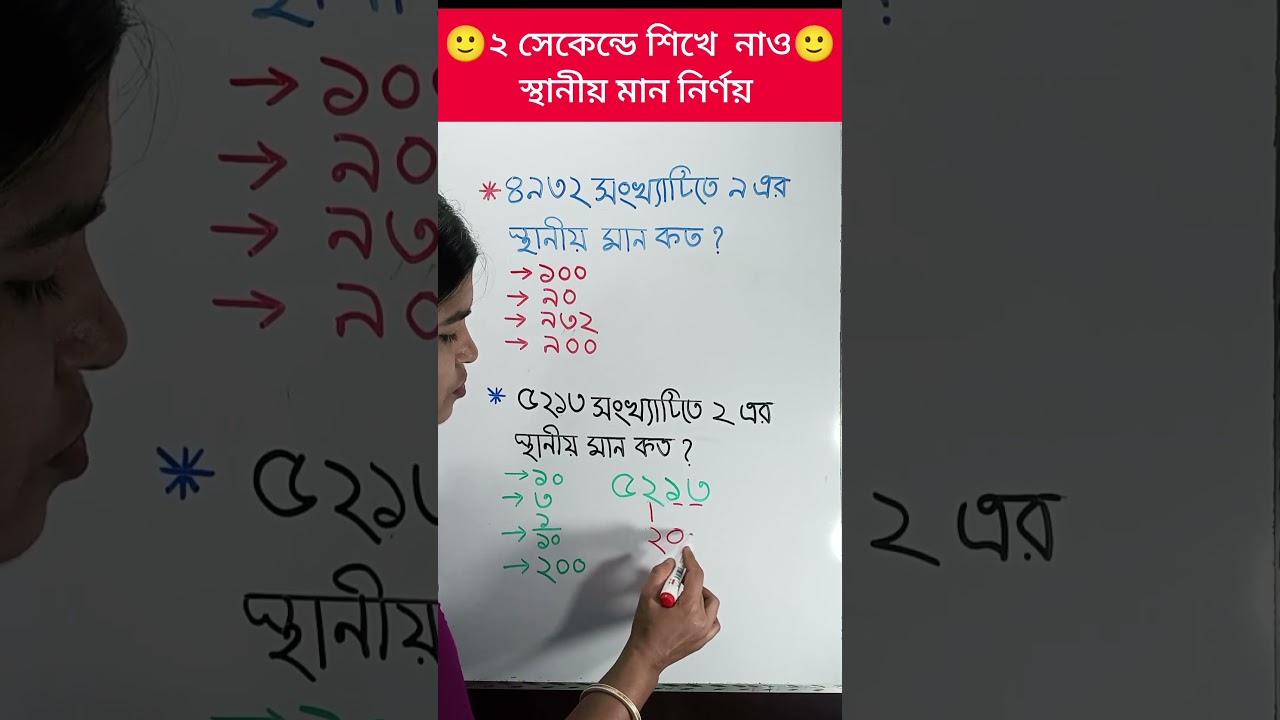 🙂২ সেকেন্ডে শিখে নাও🙂
স্থানীয় মান নির্ণয়
* ৪৯৩২ সংখ্যাটিতে ৯ এর
স্থানীয় মান কত ?
→ ১০০
→ ৯০
→ ৯৩২
→ ৯০০
* ৫২১৩ সংখ্যাটিতে ২ এর
স্থানীয় মান কত ?
→ ১০
→ ৩
→ ১/১০
→ ২০০
৫২১৩
২০